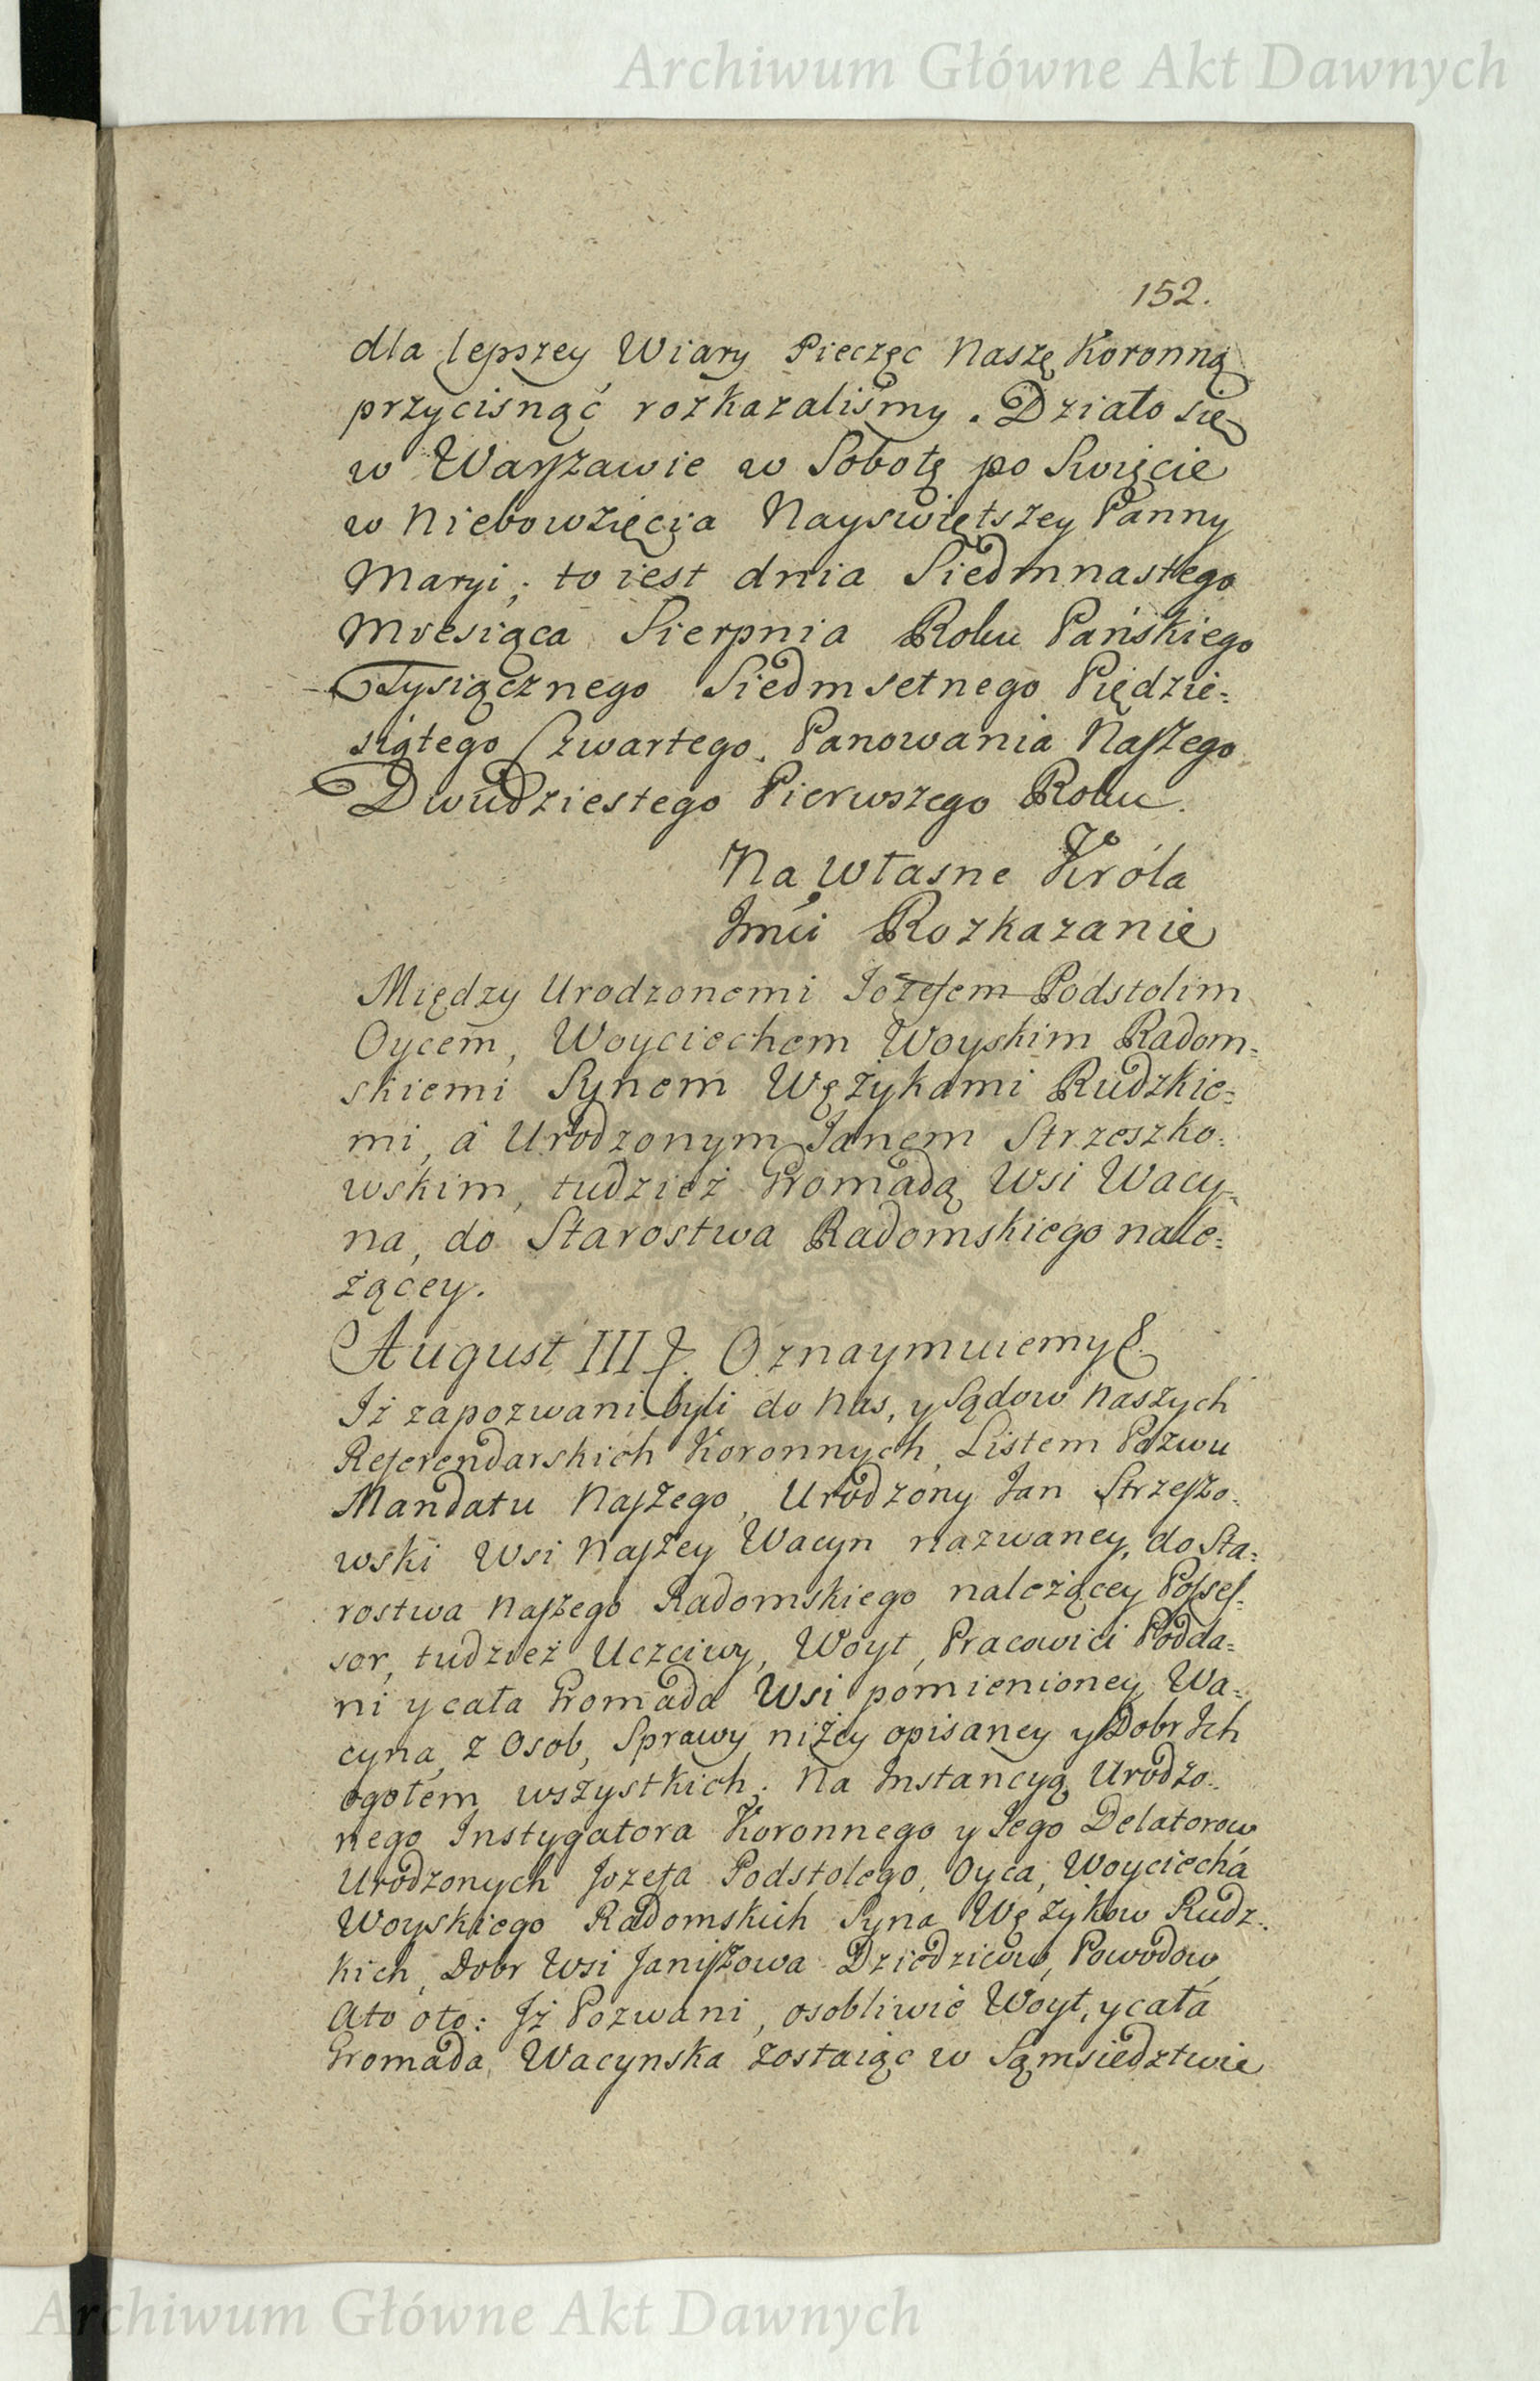 Archiwum Główne Akt Dawnych
152.
dla lepszey Wiary Pieczęc Naszę Koronną
przycisnąć rozkazaliśmy. Działo się
w Warszawie w Sobotę po Swięcie
w Niebowzięcia Nayswiętszey Panny
Maryi, to iest dnia Siedmnastego
Miesiąca Sierpnia Roku Pańskiego
Tysiącznego Siedmsetnego Piędzie=
siątego Czwartego. Panowania Naszego
Dwudziestego Pierwszego Roku.
Na własne Króla
Jmći Rozkazanie
Między Urodzonemi Iozefem Podstolim
Oycem, Woyciechem Woyskim Radom=
skiemi Synem Wężykami Rudzkie=
mi, á Urodzonym Janem Strzeszko=
wskim, tudzież Gromadą Wsi Wacy=
na, do Starostwa Radomskiego nale=
żącey.
August III. Oznaymuiemy
Iż zapozwani byli do Nas, y Sądow Naszych
Referendarskich Koronnych, Listem Pozwu
Mandatu Naszego, Urodzony Jan Strzeszo=
wski Wsi Naszey Wacyn nazwaney, do Sta=
rostwa Naszego Radomskiego należącey Posses=
sor, tudzież Uczciwy, Woyt, Pracowici Podda=
ni y cała Gromada Wsi pomienioney Wa=
cyna, z Osob, Sprawy niżey opisaney y Dobr Ich
ogołem wszystkich. Na Instancyą Urodzo=
nego Instygatora Koronnego y Jego Delatorow
Urodzonych Jozefa Podstolego, Oyca, Woyciecha
Woyskiego Radomskich Syna Wężykow Rudz=
kich, Dobr Wsi Janiszowa Dziedzicow, Powodow
Ato oto: Iż Pozwani, osobliwie Woyt, y cała
Gromada Wacynska zostaiąc w Sąmsiedztwie
Archiwum Główne Akt Dawnych